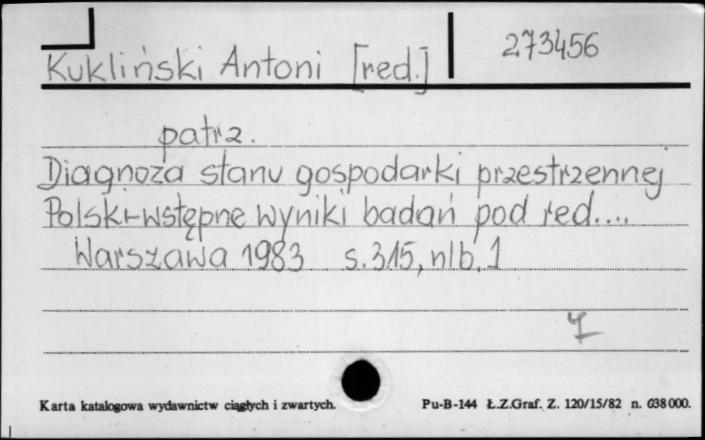 Kukliński Antoni [red.] 273456
patrz.
Diagnoza stanu gospodarki przestrzennej
Polski-wstępne wyniki badań pod red....
Warszawa 1983 s.315, nlb. 1
Karta katalogowa wydawnictw ciągłych i zwartych. Pu-B-144 Ł.Z.Graf. Z. 120/15/82 n. 638000.